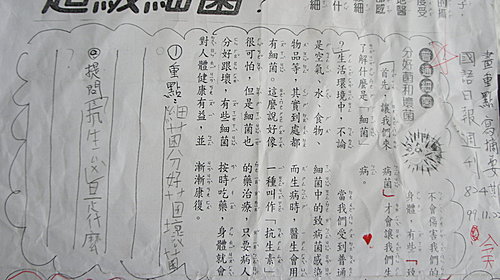 超級細菌?
畫重點寫摘要
國語日報週刊
普通細菌
分好菌和壞菌
首先,讓我們來
了解什麼是「細菌」
?生活環境中,不論
是空氣、水、食物、
物品等,其實到處都
有細菌。這麼說好像
很可怕,但是細菌也
分好跟壞,有些細菌
對人體健康有益,並
不會傷害我們的
身體,有些「致
病菌」才會讓我們生
病。
當我們受到普通
細菌中的致病菌感染
而生病時,醫生會用
一種叫作「抗生素」
的藥治療,只要病人
按時吃藥,身體就會
漸漸康復。
①重點:細菌分好菌壞菌
②提問:抗生 是什麼